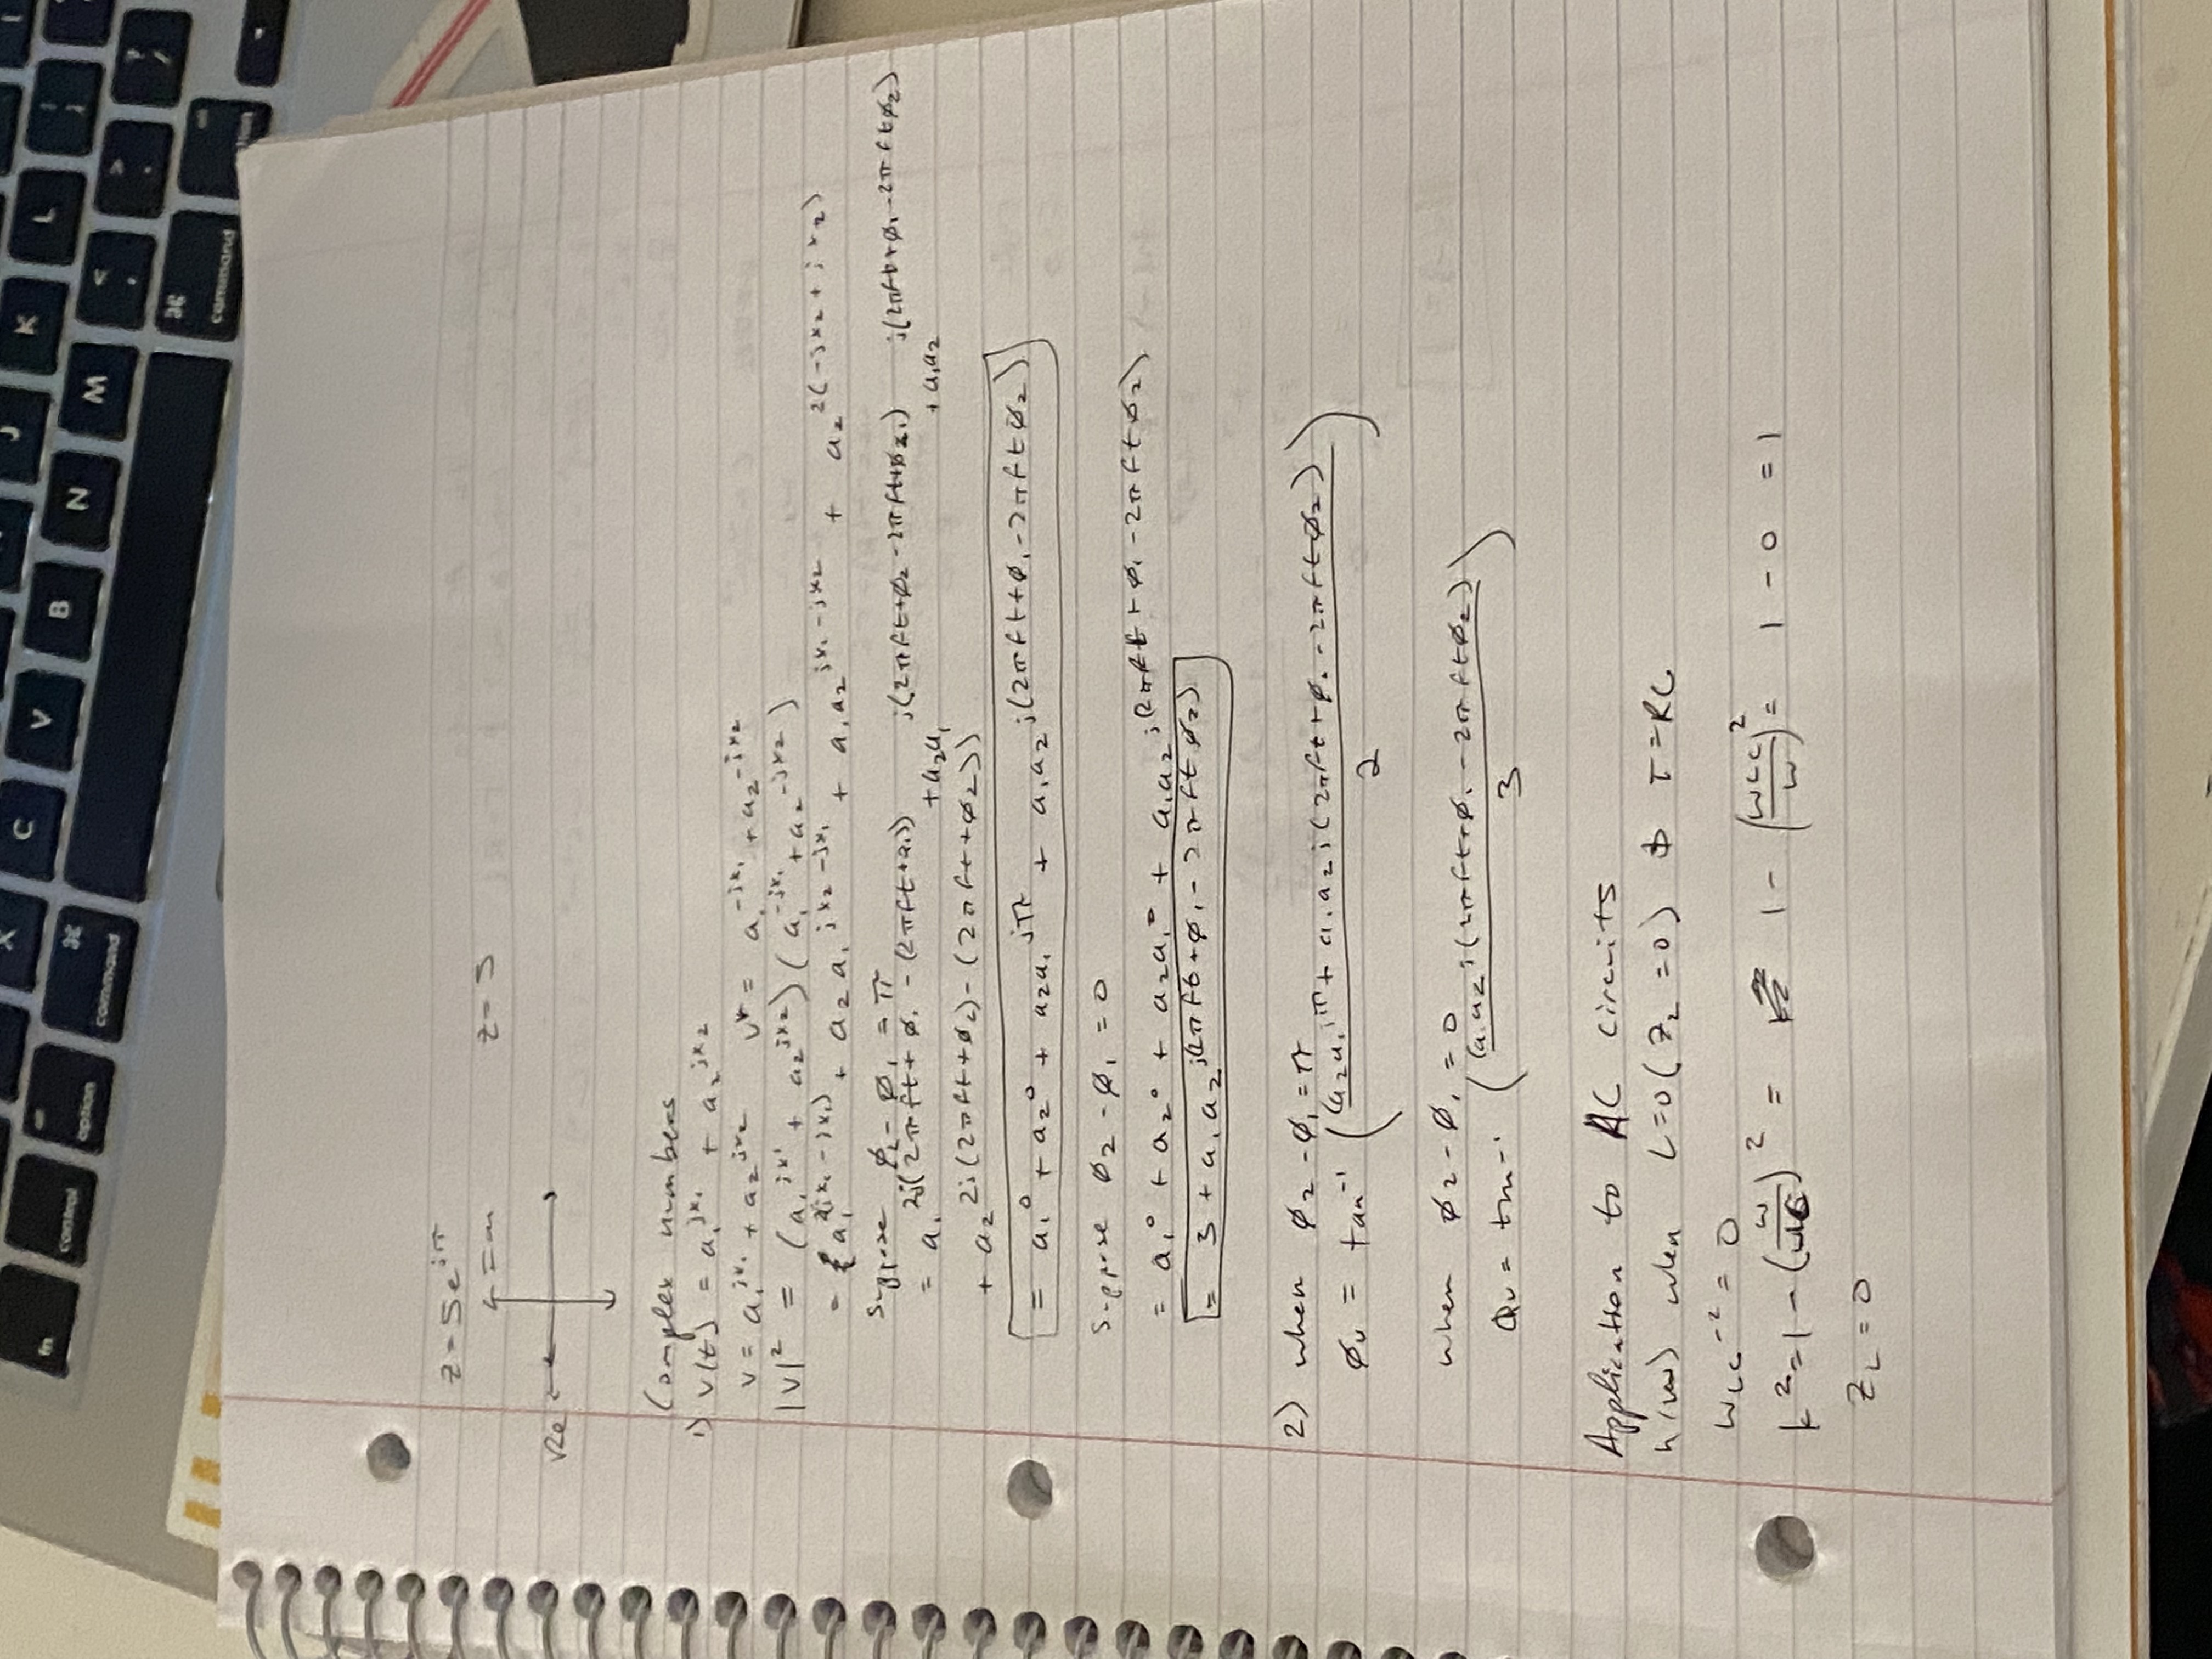 fn control option command X C V B N M J K L < , > . ? / ; :
⌘ command option
z = 5e^{jπ}
Im z = 5
Re
Complex numbers
1) v(t) = a₁^{jx₁} + a₂^{jx₂}
v = a₁^{jx₁} + a₂^{jx₂} v* = a₁^{-jx₁} + a₂^{-jx₂}
|v|² = (a₁^{jx₁} + a₂^{jx₂})(a₁^{-jx₁} + a₂^{-jx₂})
= a₁^{2(jx₁ - jx₁)} + a₂a₁^{jx₂ - jx₁} + a₁a₂^{jx₁ - jx₂} + a₂^{2(-jx₂ + jx₂)}
Suppose φ₂ - φ₁ = π
= a₁^{2j(2πft + φ₁ - (2πft + φ₁))} + a₂a₁^{j(2πft + φ₂ - 2πft + φ₁)} + a₁a₂^{j(2πft + φ₁ - 2πftφ₂)}
+ a₂^{2j(2πft + φ₂) - (2πft + φ₂))}
= a₁⁰ + a₂⁰ + a₂a₁^{jπ} + a₁a₂^{j(2πft + φ₁ - 2πftφ₂)}
Suppose φ₂ - φ₁ = 0
= a₁⁰ + a₂⁰ + a₂a₁⁰ + a₁a₂^{j(2πft + φ₁ - 2πftφ₂)}
= 3 + a₁a₂^{j(2πft + φ₁ - 2πftφ₂)}
2) when φ₂ - φ₁ = π
φᵥ = tan⁻¹ ((a₂a₁^{jπ} + a₁a₂j(2πft + φ₁ - 2πftφ₂)) / 2)
when φ₂ - φ₁ = 0
φᵥ = tan⁻¹ ((a₁a₂j(2πft + φ₁ - 2πftφ₂)) / 3)
Application to AC circuits
h(w) when L=0 (Z_L = 0) & T=RC
w_{LC}⁻² = 0
k² = 1 - (w/w_{LC})² = 1 - (w_{LC}/w)² = 1 - 0 = 1
Z_L = 0